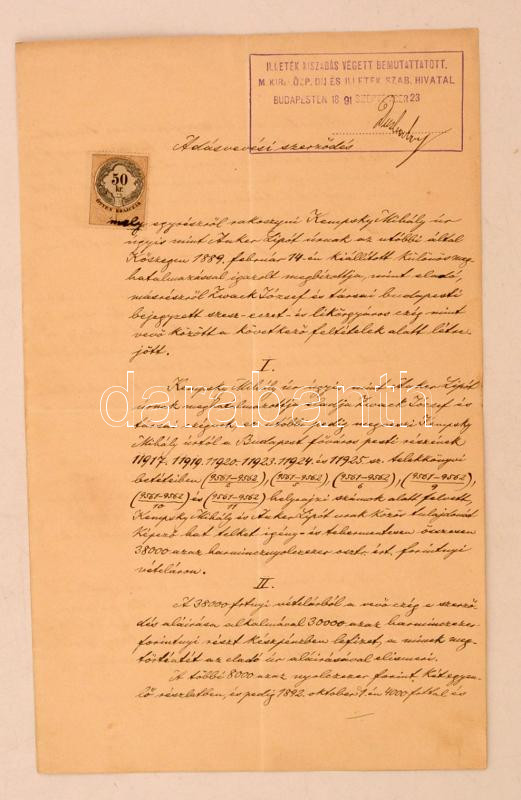 ILLETÉK KISZABÁS VÉGETT BEMUTATTATOTT.
M. KIR. KÖZP. DÍJ ÉS ILLETÉK SZAB. HIVATAL
BUDAPESTEN 1891 SZEPTEMBER 23
Adásvevési szerződés
50
kr.
ÖTVEN KRAJCZÁR
mely egyrészről rakoszyni Kempsky Mihály úr
úgyis mint Anker Lipót úrnak az utóbbi által
Kőszegen 1889. február 14-én kiállított különös meg-
hatalmazással igazolt megbizottja, mint eladó,
másrészről Zwack József és társai budapesti
bejegyzett szesz-eczet- és likőrgyáros czég mint
vevő között a következő feltételek alatt létre-
jött.
I.
Kempsky Mihály úr úgyis mint Anker Lipót
úrnak meghatalmazottja eladja Zwack József és
társai czégnek, ez utóbbi pedig megveszi Kempsky
Mihály úrtól a Budapest főváros pesti részének
11917. 11919. 11920. 11923. 11924. és 11925. sz. telekkönyvi
betéteiben (9561-9562), (9561-9562), (9561-9562), (9561-9562),
9
(9561-9562) és (9561-9562) helyrajzi számok alatt felvett,
10 11
Kempsky Mihály és Anker Lipót urak közös tulajdonát
képező hat telket igény- és tehermentesen összesen
38000 azaz harmincznyolczezer osztr. ért. forintnyi
vételáron.
II.
A 38000 frtnyi vételárból a vevő czég e szerző-
dés aláirása alkalmával 30000 azaz harminczezer
forintnyi részt készpénzben lefizet, a minek meg-
történtét az eladó úr aláirásával elismeri.
A többi 8000 azaz nyolczezer forint két egyen-
lő részletben, és pedig 1892. október 1-én 4000 frttal és
darabanth